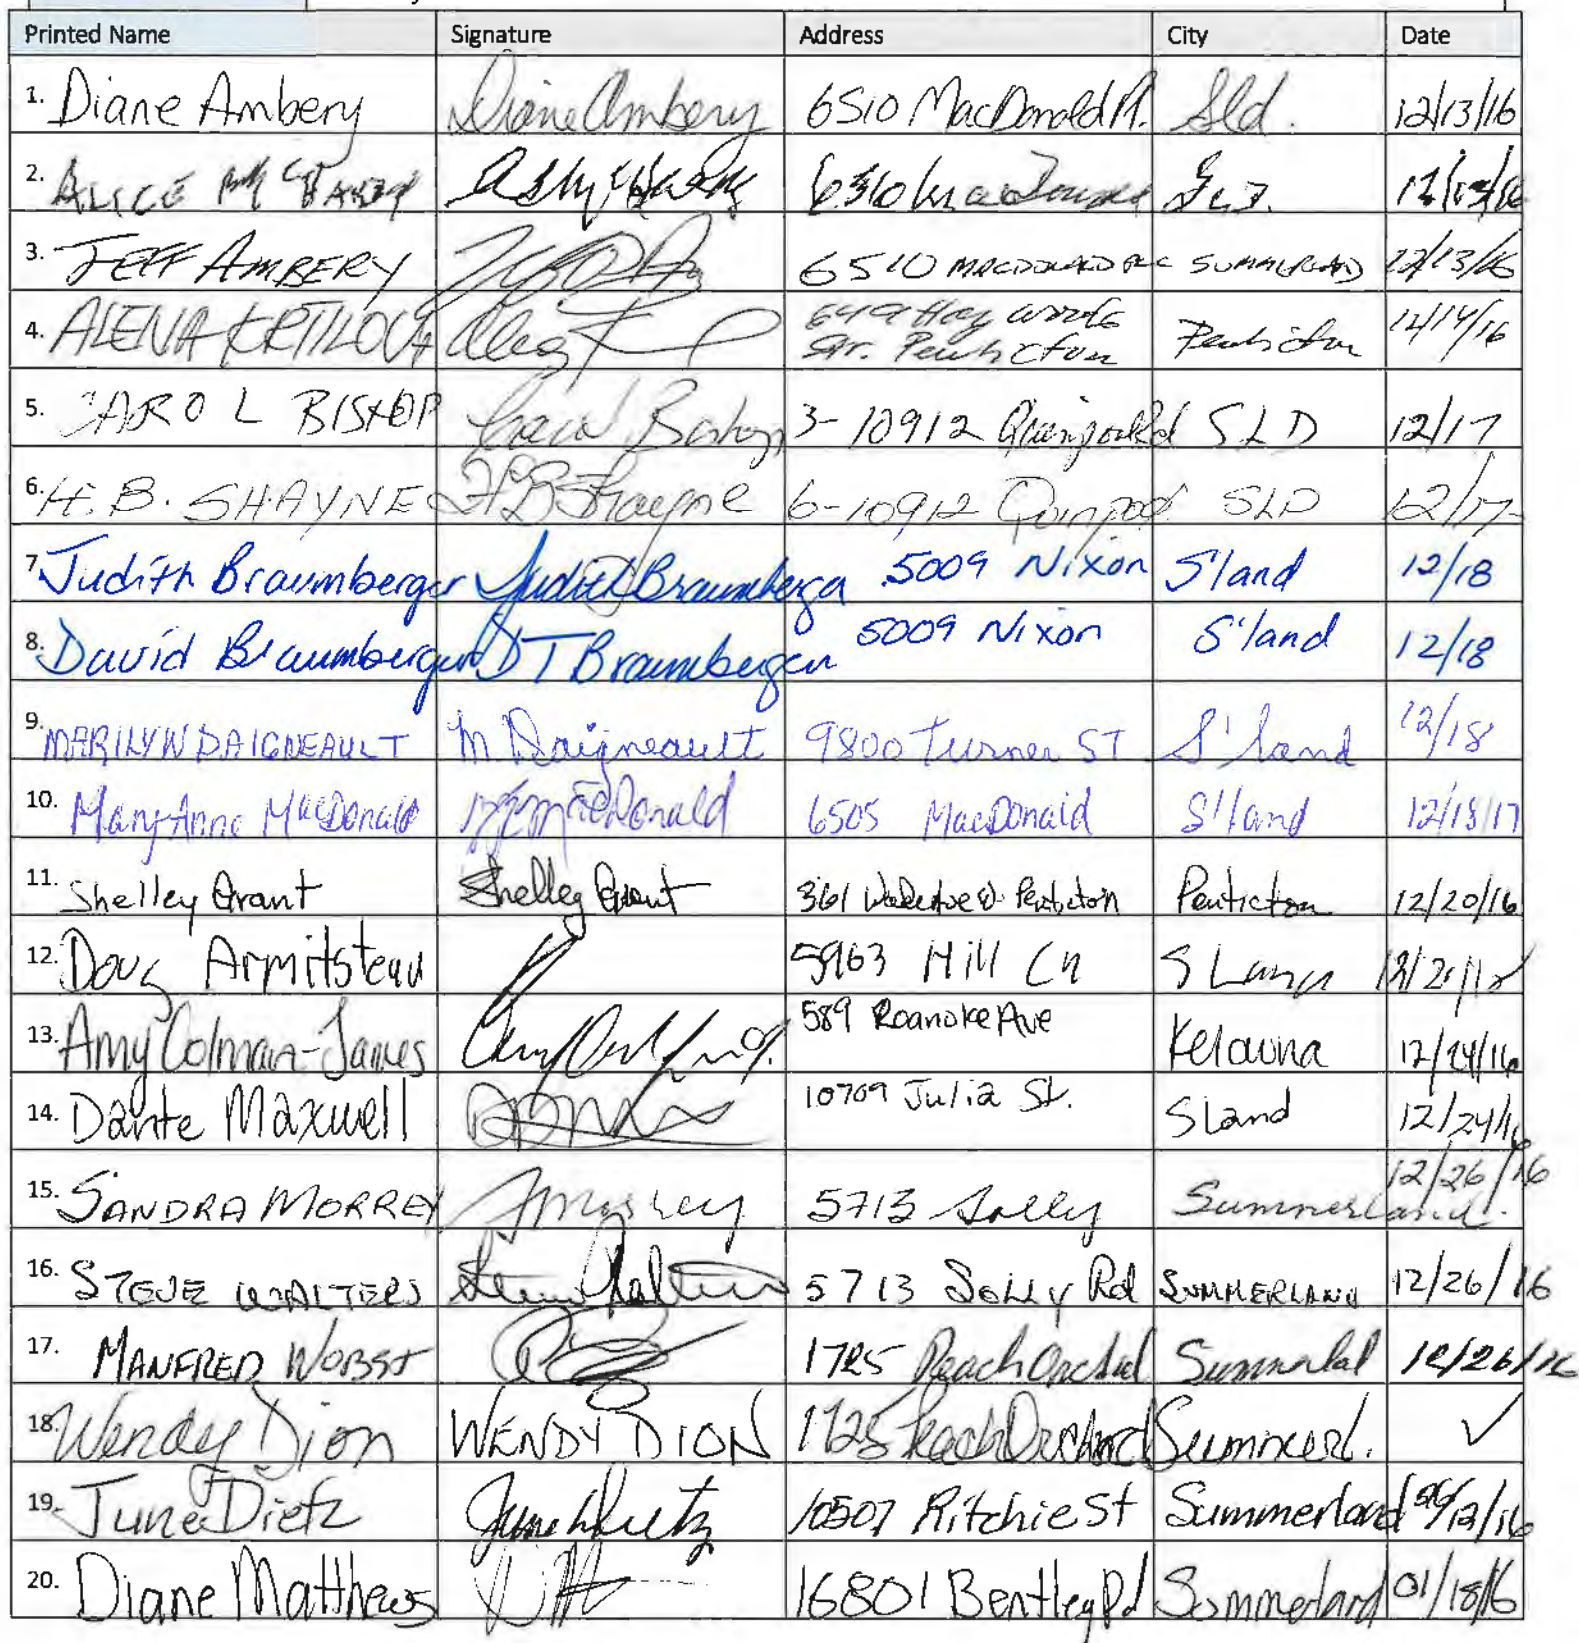 Printed Name Signature Address City Date
1. Diane Ambery Diane Ambery 6510 MacDonald Pl. Sld. 12/13/16
2. ALICE 6510
3. JEFF AMBERY 6510 MACDONALD PLC SUMMERLAND 12/13/16
4. ALENA KRTILOVA 649 Haywoode Penticton 12/14/16
Str. Penticton
5. CAROL BISHOP Carol Bishop 3-10912 Quinpool Rd SLD 12/17
6. H.B. SHAYNE HB Shayne 6-10912 Quinpool SLD 12/17
7. Judith Braumberger Judith Braumberger 5009 Nixon S'land 12/18
8. David Braumberger DT Braumberger 5009 Nixon S'land 12/18
9. MARILYN DAIGNEAULT M Daigneault 9800 Turner ST S'land 12/18
10. Mary-Anne MacDonald MacDonald 6505 MacDonald S'land 12/18/17
11. Shelley Grant Shelley Grant 361 Penticton Penticton 12/20/16
12. Doug Armitstead 5963 Hill Cn S Land
13. Amy Colman-James 589 Roanoke Ave Kelowna 12/24/16
14. Dante Maxwell 10709 Julia St. Sland 12/24/16
15. SANDRA MORREY SMorrey 5713 Solly Summerland. 12/26/16
16. STEVE WALTERS Steve Walters 5713 Solly Rd SUMMERLAND 12/26/16
17. MANFRED WOBST 1725 Peach Orchard Summerland 12/26/16
18. Wendy Dion WENDY DION 1725 Peach Orchard Summerl. ✓
19. June Dietz June Dietz 10507 Ritchie St Summerland 26/12/16
20. Diane Matthews 16801 Bentley Rd Summerland 01/18/16